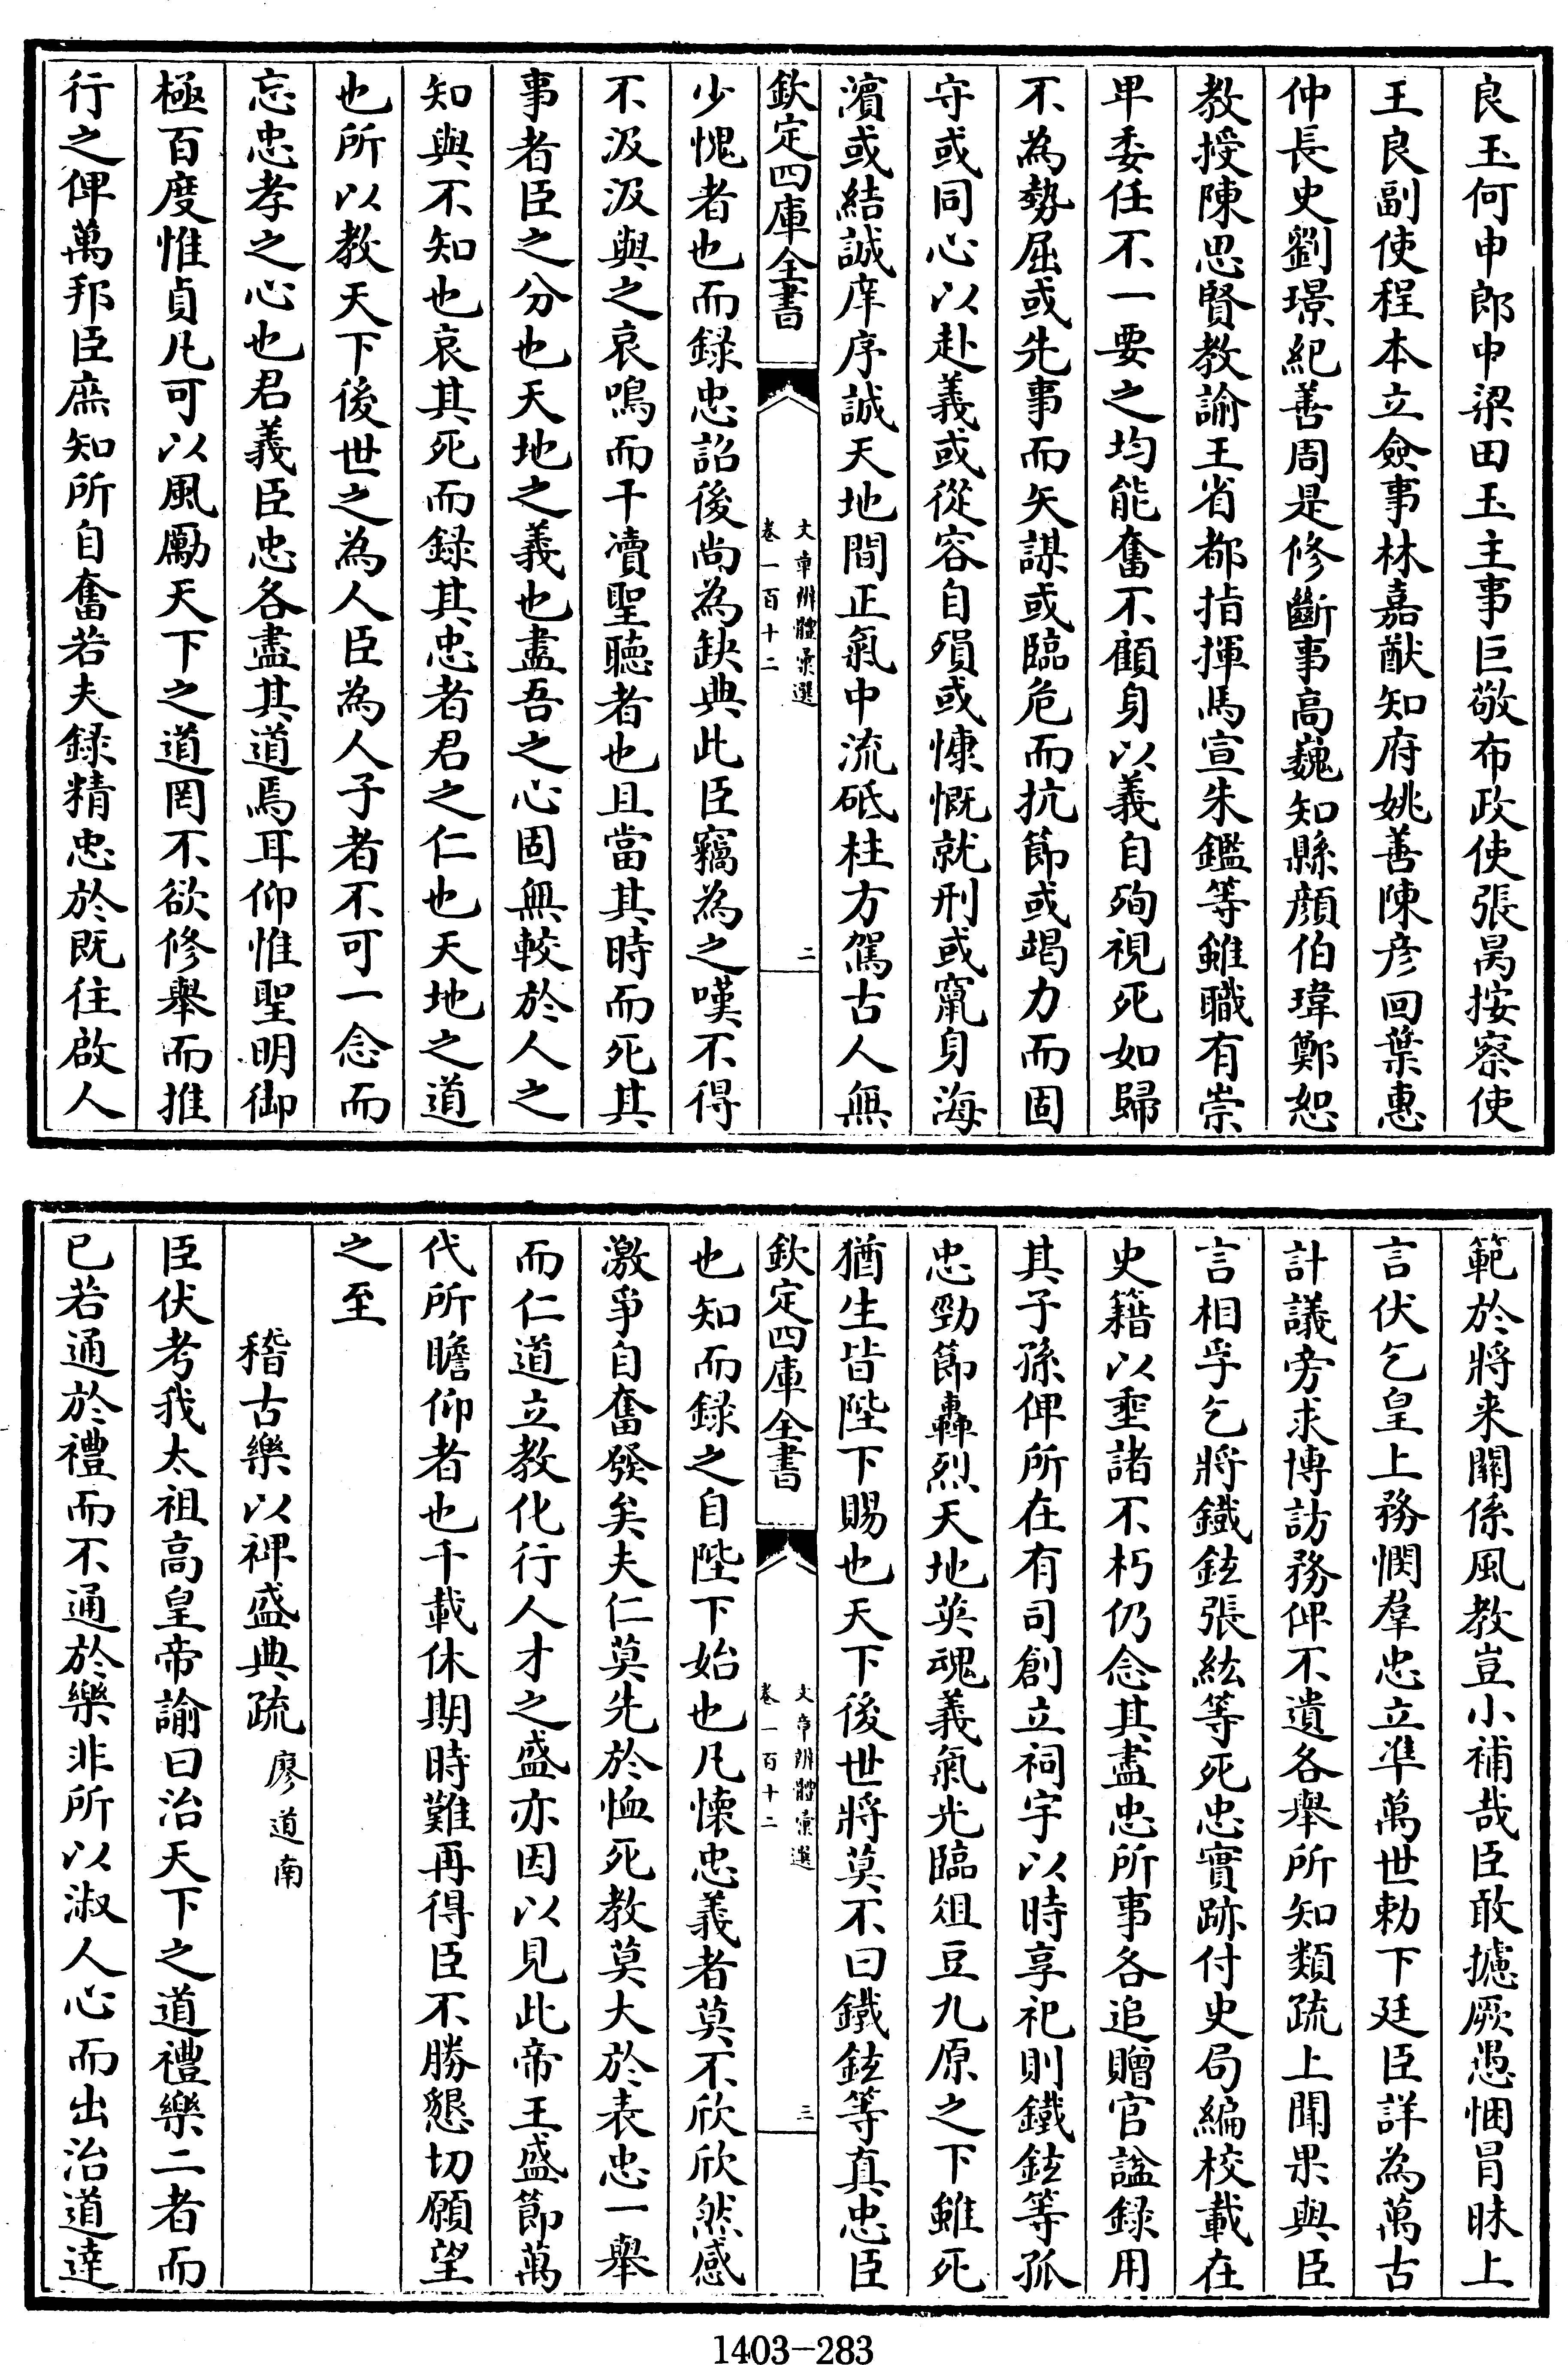 良玉何申郎中梁田玉主事巨敬布政使張昺按察使
王良副使程本立僉事林嘉猷知府姚善陳彦回葉惠
仲長史劉璟紀善周是修斷事高巍知縣顔伯瑋鄭恕
教授陳思賢教諭王省都指揮馬宣朱鑑等雖職有崇
卑委任不一要之均能奮不顧身以義自殉視死如歸
不為勢屈或先事而矢謀或臨危而抗節或竭力而固
守或同心以赴義或從容自殞或慷慨就刑或竄身海
濵或結誠庠序誠天地間正氣中流砥柱方駕古人無
欽定四庫全書
文章辨體彙選
卷一百十二
二
少愧者也而録忠詔後尚為缺典此臣竊為之嘆不得
不汲汲與之哀鳴而干凟聖聽者也且當其時而死其
事者臣之分也天地之義也盡吾之心固無較於人之
知與不知也哀其死而録其忠者君之仁也天地之道
也所以教天下後世之為人臣為人子者不可一念而
忘忠孝之心也君義臣忠各盡其道焉耳仰惟聖明御
極百度惟貞凡可以風勵天下之道罔不欲修舉而推
行之俾萬邦臣庶知所自奮若夫録精忠於既往啟人
範於將来關係風教豈小補哉臣敢攄厥愚悃冒昧上
言伏乞皇上務憫羣忠立凖萬世勅下廷臣詳為萬古
計議旁求博訪務俾不遺各舉所知類疏上聞果與臣
言相孚乞將鐵鉉張紘等死忠實跡付史局編校載在
史籍以垂諸不朽仍念其盡忠所事各追贈官諡録用
其子孫俾所在有司創立祠宇以時享祀則鐵鉉等孤
忠勁節轟烈天地英魂義氣光臨俎豆九原之下雖死
猶生皆陛下賜也天下後世將莫不曰鐵鉉等真忠臣
欽定四庫全書
文章辨體彙選
卷一百十二
三
也知而録之自陛下始也凡懐忠義者莫不欣欣然感
激爭自奮發矣夫仁莫先於恤死教莫大於表忠一舉
而仁道立教化行人才之盛亦因以見此帝王盛節萬
代所瞻仰者也千載休期時難再得臣不勝懇切願望
之至
稽古樂以裨盛典疏 廖道南
臣伏考我太祖高皇帝諭曰治天下之道禮樂二者而
已若通於禮而不通於樂非所以淑人心而出治道達
1403-283